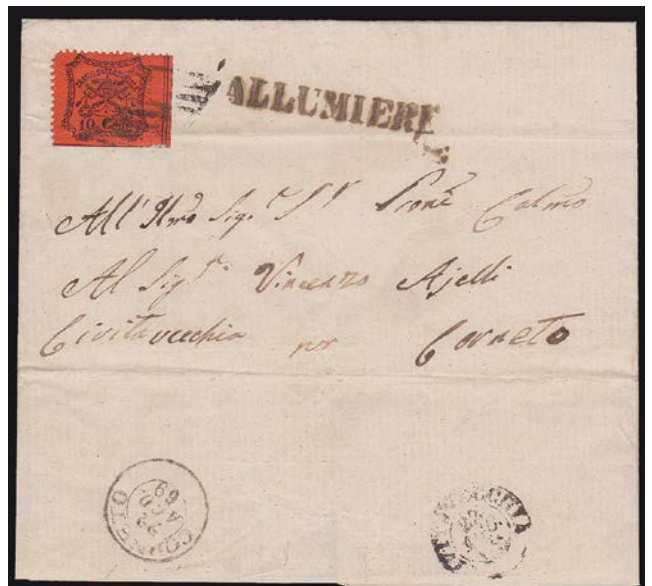 10
ALLUMIERE
All' Illmo Sigr
Al Sigr Vincenzo Ajelli
Civitavecchia per Corneto
CORNETO
22
AGO
69
CIVITAVECCHIA